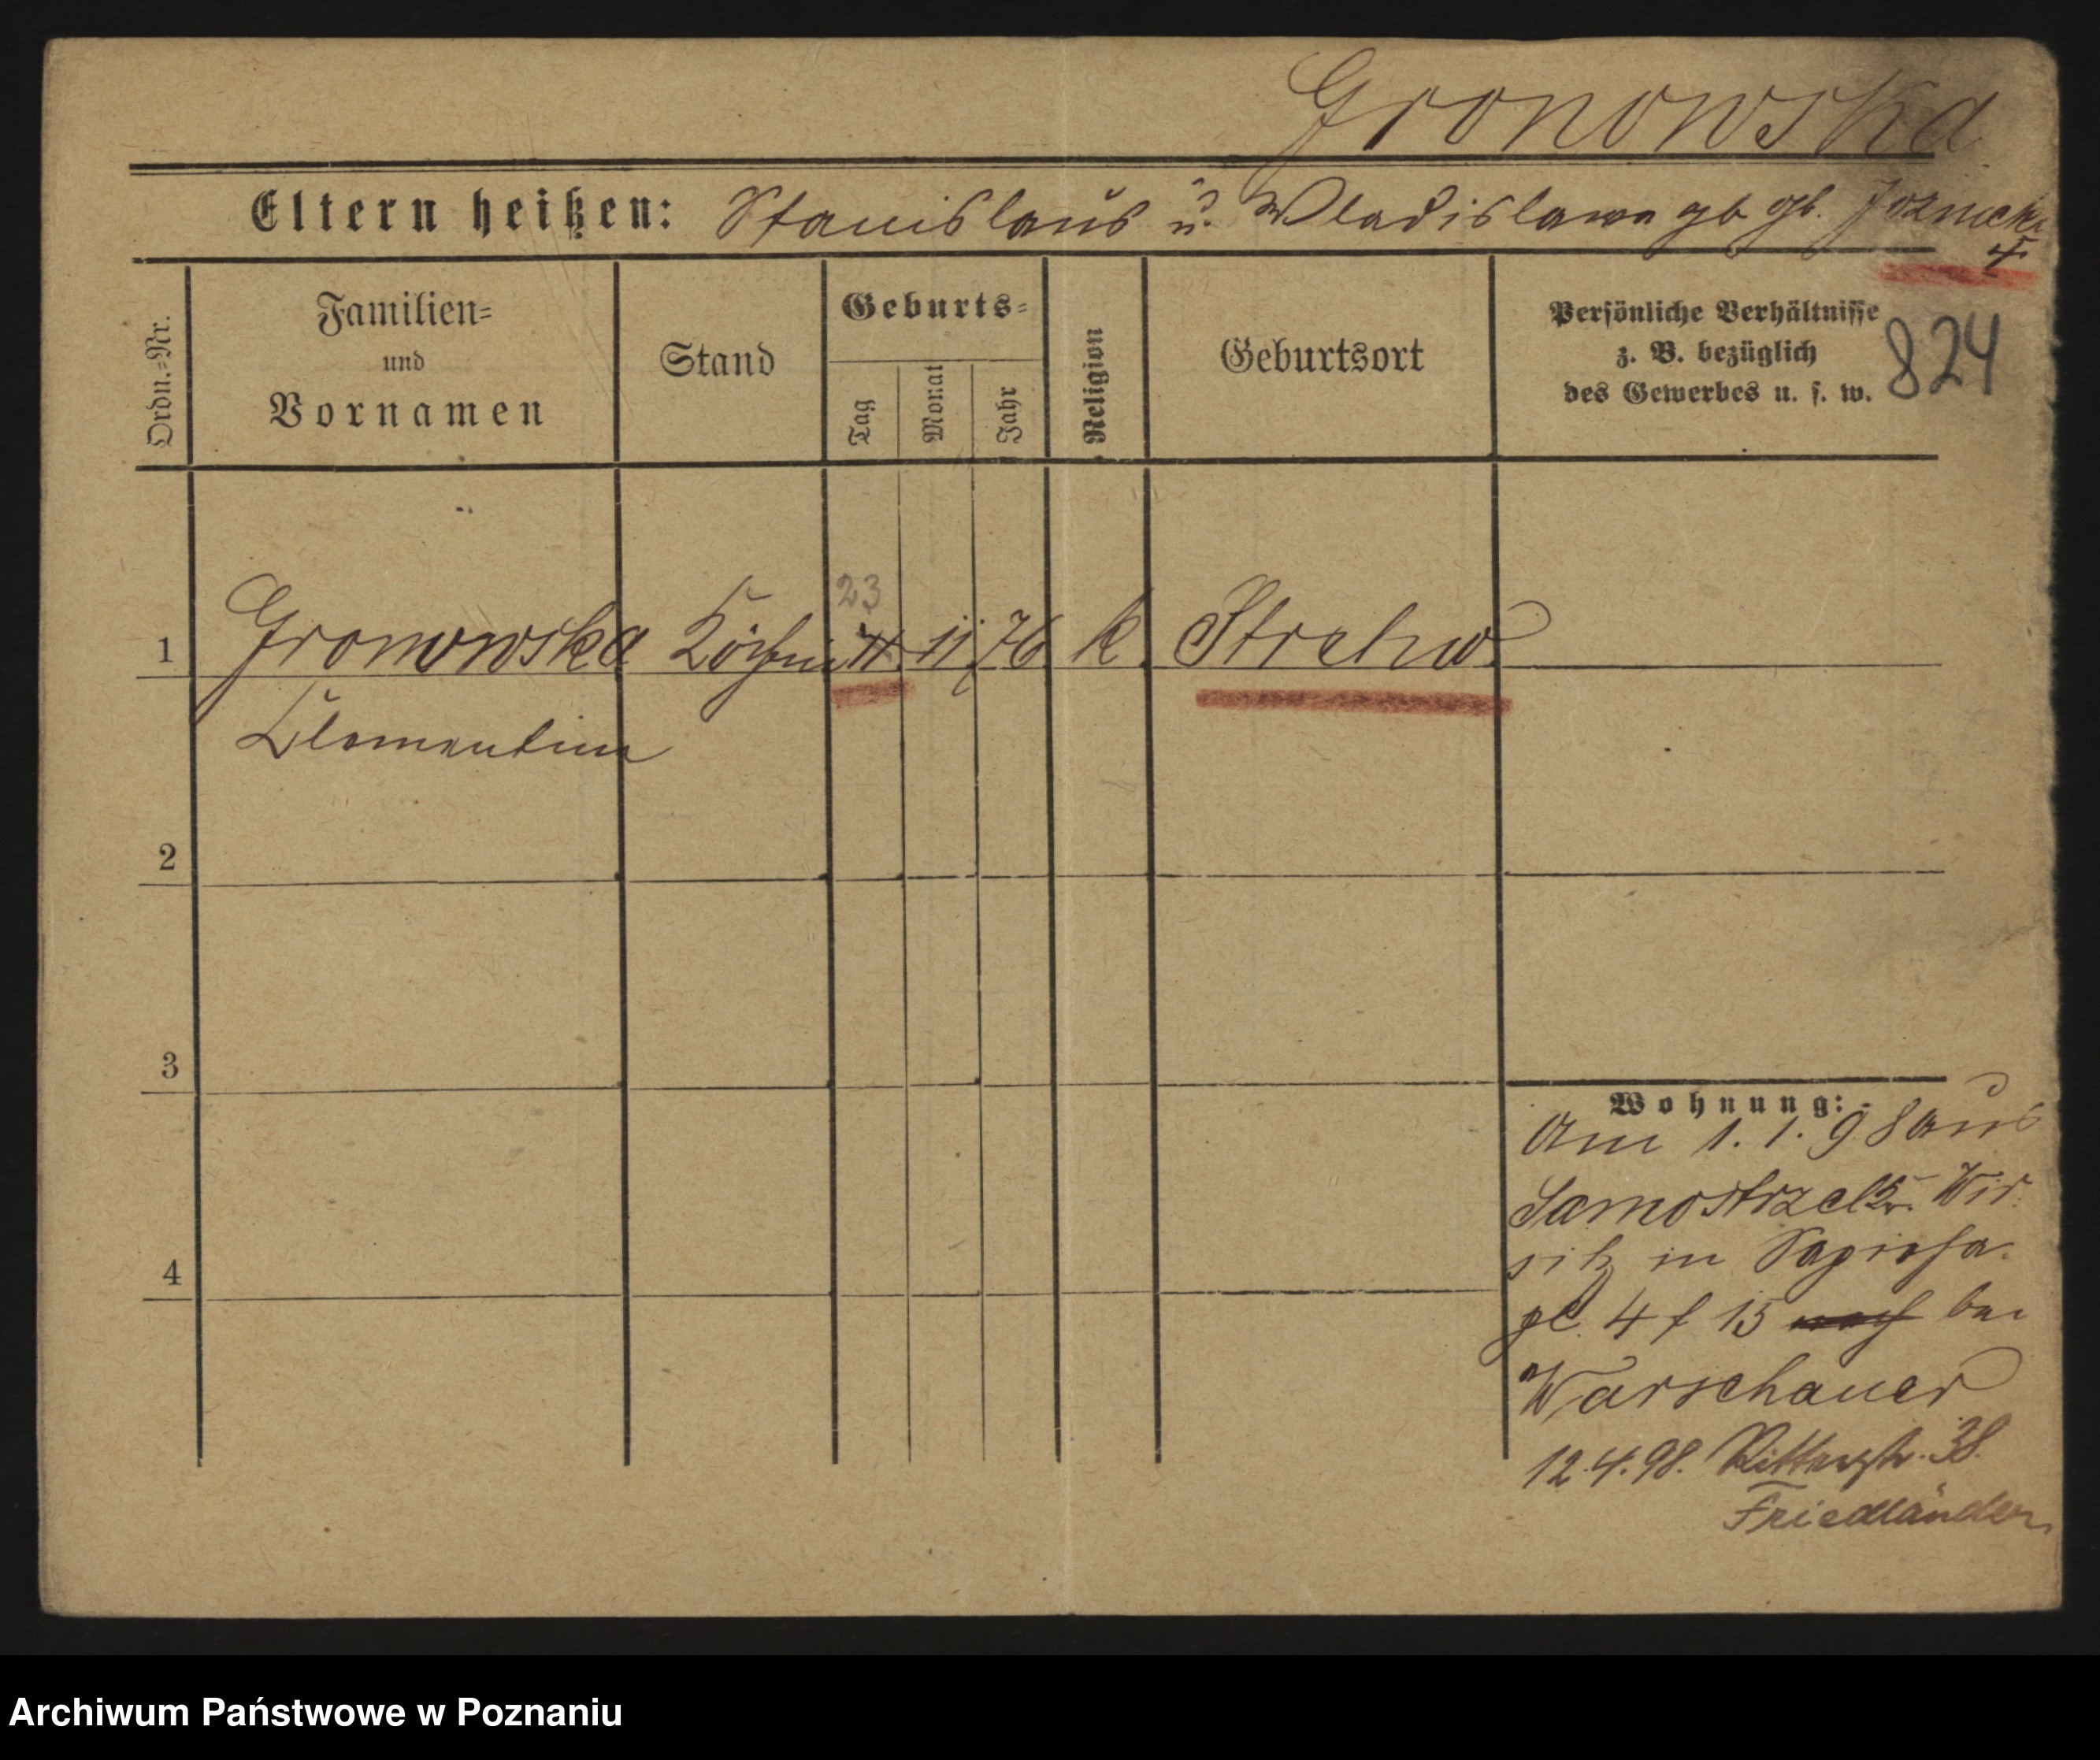 Gronowska
Eltern heißen: Stanislaus u. Wladislawa gb gb.
824
Ordn.-Nr.
Familien-
und
Vornamen
Stand
Geburts-
Tag
Monat
Jahr
Religion
Geburtsort
Persönliche Verhältnisse
z. B. bezüglich
des Gewerbes u. s. w.
23
1 Gronowska Köchin 11 76 k. Strelno
Clementina
2
3
4
Wohnung:
Am 1. 1. 98 aus
Samostrzel Kr. Wir
sitz in Sapieha
pl. 4 f 15 nach bei
Warschauer
12.4.98. Ritterstr. 38.
Friedländer
Archiwum Państwowe w Poznaniu